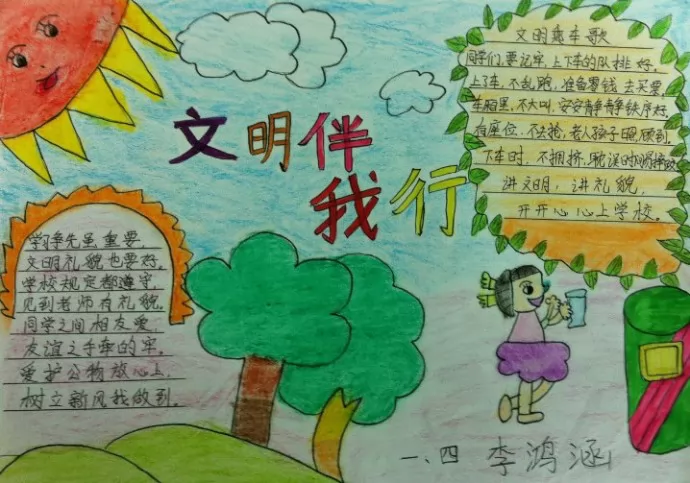 文明伴
我行
文明乘车歌
同学们，要记牢，上下车的队排好。
上了车，不乱跑，准备零钱去买票。
车厢里，不大叫，安安静静秩序好。
有座位，不去抢，老人孩子照顾到。
下车时，不拥挤，
讲文明，讲礼貌，
开开心心上学校。
学习虽重要，
文明礼貌也要好。
学校规定都遵守，
见到老师有礼貌。
同学之间相友爱，
友谊之手牵的牢。
爱护公物放心上，
树立新风我做到。
一、四 李鸿涵